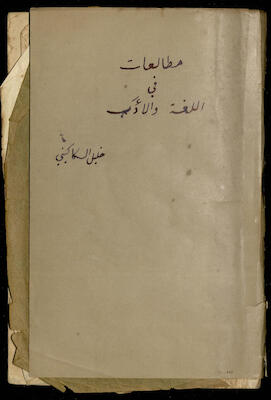 مطالعات
في
اللغة والأدب
خليل السكاكيني